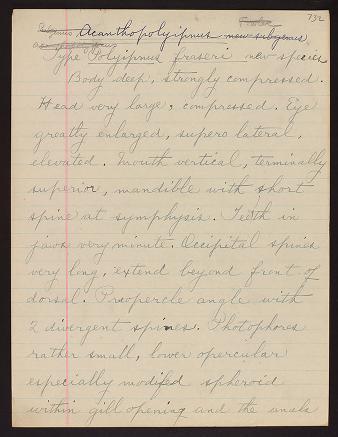 732
Subgenus Acanthopolyipnus new subgenus
Fowler
Type Polyipnus fraseri new species
Body deep, strongly compressed.
Head very large, compressed. Eye
greatly enlarged, supero lateral,
elevated. Mouth vertical, terminally
superior, mandible with short
spine at symphysis. Teeth in
jaws very minute. Occipital spines
very long, extend beyond front of
dorsal. Preopercle angle with
2 divergent spines. Photophores
rather small, lower opercular
especially modifed spheroid
within gill opening and the anals